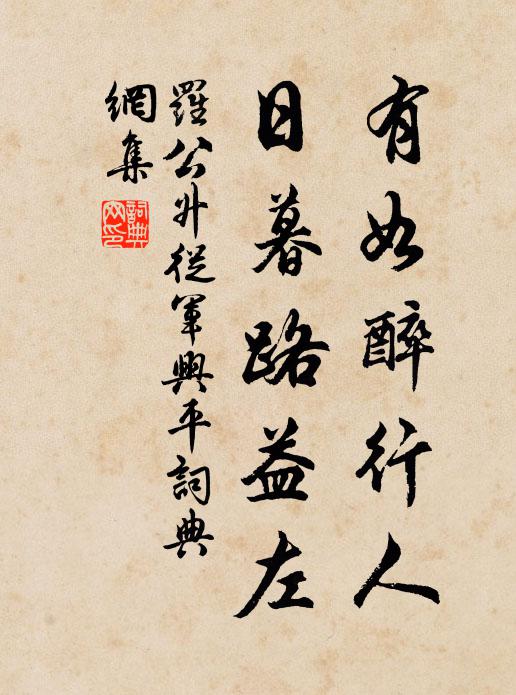 有如醉行人
日暮路益左
羅公升從軍興平詞典
網集
詞典